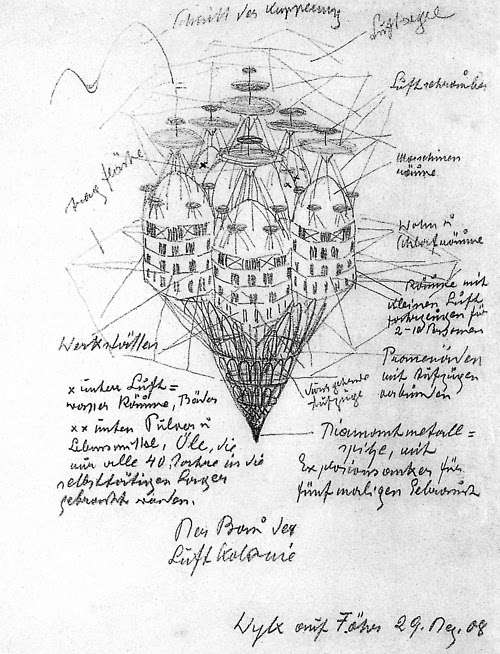 Schnitt der Kupplung
Luftsegel
Luftschrauben
Maschinen
räume
Tragfläche
Wohn u
Schlafräume
Räume mit
kleinen Luft
fahrzeugen für
2-10 Personen
Werkstätten
Promenaden
mit Aufzügen
verbunden
x unten Luft=
Räume, Bäder
xx unten Pulver u
Lebensmittel, Öle, die
nur alle 40 Jahre in die
selbsttätigen Lager
gebracht werden.
Aufzüge
Diamantmetall=
spitze, mit
Explosionsanker für
fünfmaligen Gebrauch
Der Bau der
Luftkolonie
Wyk auf Föhr 29. 08